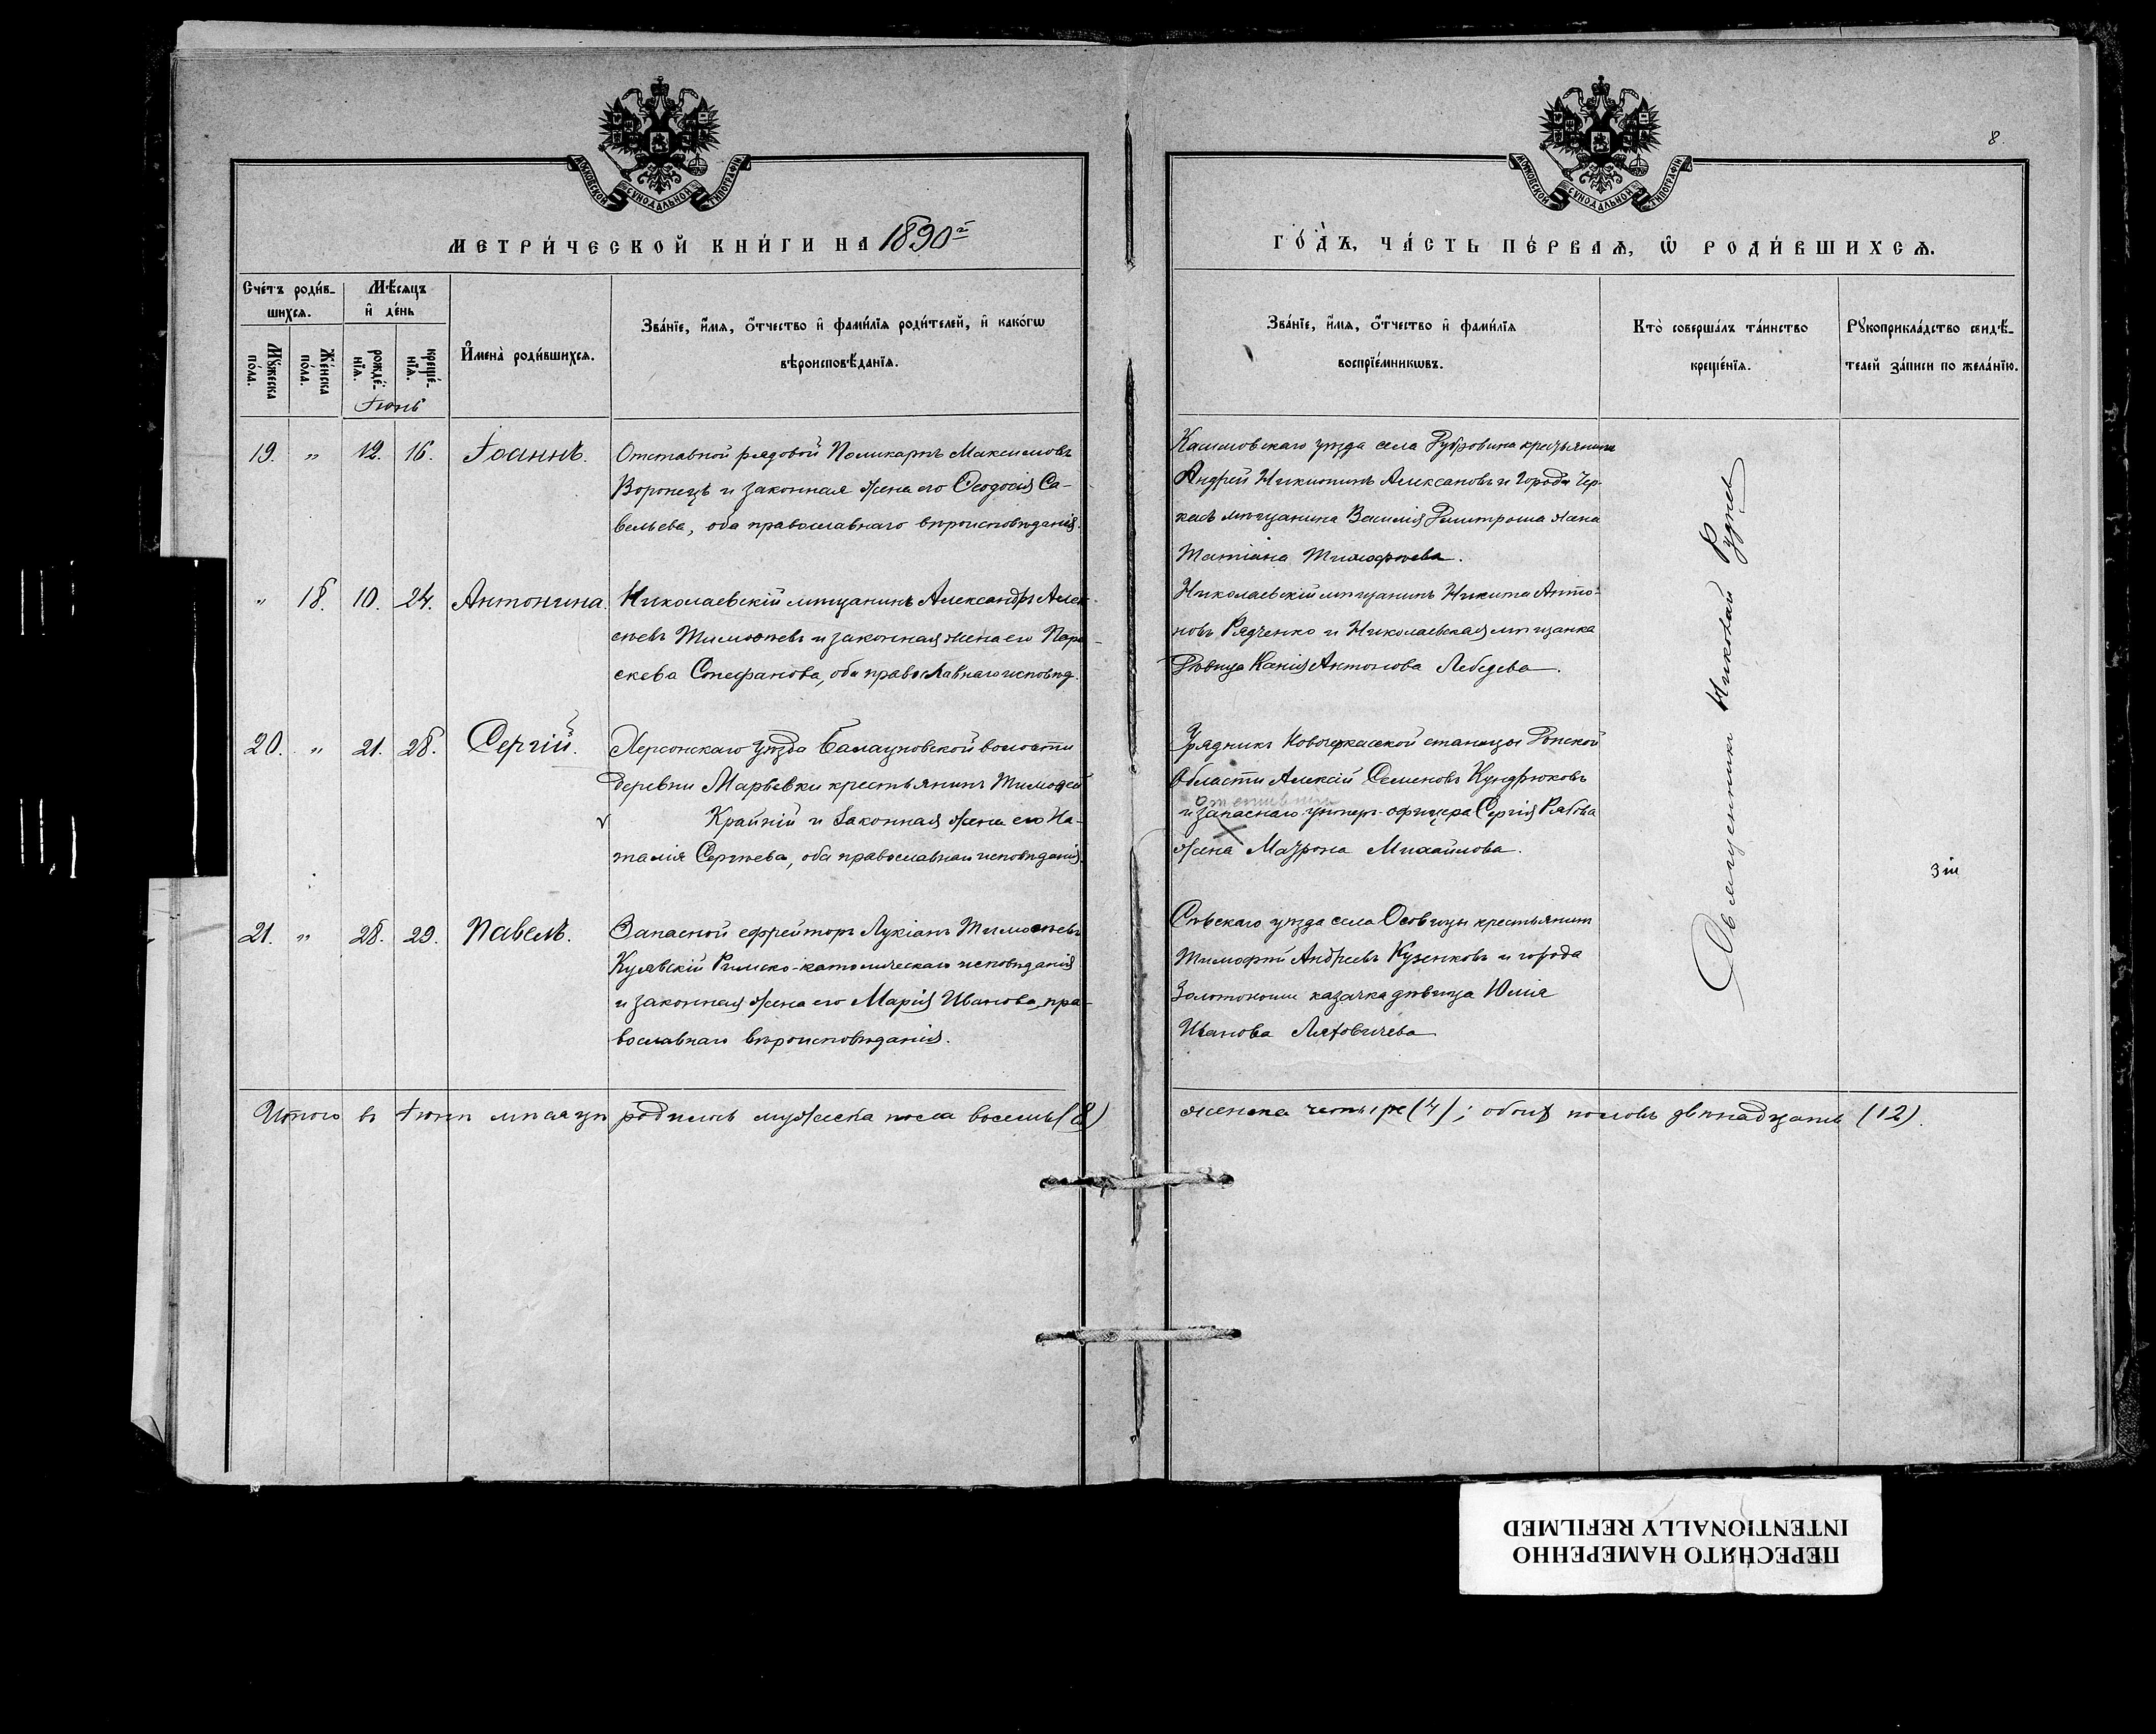 8.
МОСКОВСКОЙ СѴНОДАЛЬНОЙ ТИПОГРАФІИ
МОСКОВСКОЙ СѴНОДАЛЬНОЙ ТИПОГРАФІИ
МЕТРИ́ЧЕСКОЙ КНИ́ГИ НА 1890й
ГО́ДЪ, ЧА́СТЬ ПЕ́РВАѦ, Ѿ РОДИ́ВШИХСѦ.
Сче́тъ роди́в-
шихсѧ.
Мѣ́сѧцъ
и҆ де́нь
Мꙋ́жеска
по́ла.
Же́нска
по́ла.
рожде́-
нїѧ.
креще́-
нїѧ.
Іюнь
И҆мена̀ роди́вшихсѧ.
Зва́нїе, и҆́мѧ, ѻ҆́тчество и҆ фами́лїѧ роди́телей, и҆ како́гѡ
вѣроисповѣ́данїѧ.
Зва́нїе, и҆́мѧ, ѻ҆́тчество и҆ фами́лїѧ
воспрїе́мникѡвъ.
Кто̀ соверша́лъ та́инство
креще́нїѧ.
Рꙋкоприкла́дство свидѣ́-
телей за́писи по жела́нїю.
19. " 12. 16. Іоаннъ.
Отставной рядовой Поликарпъ Максимовъ
Воронецъ и законная жена его Ѳеодосія Са-
вельева, оба православнаго вѣроисповѣданія.
Касимовскаго уѣзда села Дубровина крестьянинъ
Андрей Алексановъ и города Чер-
касъ мѣщанина Василія Дмитроша жена
Татіана Тимофѣева.
" 18. 10. 24. Антонина.
Николаевскій мѣщанинъ Александръ Алек-
сѣевъ Тимоѳеевъ и законная жена его Пара-
скева Стефанова, оба православнаго исповѣд.
Николаевскій мѣщанинъ Никита Анто-
новъ Рядченко и Николаевская мѣщанка
дѣвица Антонова Лебедева.
20. " 21. 28. Сергій.
Херсонскаго уѣзда Балацковской волости
деревни Марьевки крестьянинъ Тимоѳей
Крайній и законная жена его На-
талія Сергѣева, оба православнаго исповѣданія.
Урядникъ Новочеркасской станицы Донской
Области Алексій Семеновъ Кундрюковъ
и запаснаго унтеръ-офицера Сергія Рябова
жена Матрона Михайлова.
21. " 28. 29. Павелъ.
Запасной ефрейторъ Лукіанъ Тимоѳеевъ
Кулявскій Римско-католическаго исповѣданія
и законная жена его Марія Иванова, пра-
вославнаго вѣроисповѣданія.
Сѣвскаго уѣзда села Осовицы крестьянинъ
Тимофей Андреевъ Кузенковъ и города
Золотоноши казачка дѣвица Юлія
Иванова
Священникъ Николай Руднев
Итого въ Іюнѣ мѣсяцѣ родилось мужеска пола восемь (8)
женска четыре (4); обоихъ половъ двѣнадцать (12).
ПЕРЕСНЯТО НАМЕРЕННО
INTENTIONALLY REFILMED